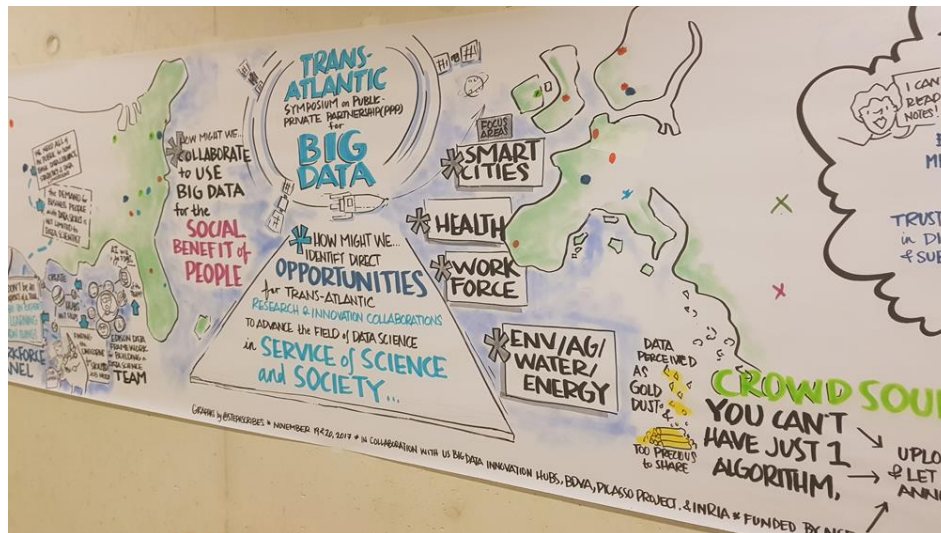 TRANS-
ATLANTIC
SYMPOSIUM on PUBLIC-
PRIVATE PARTNERSHIP (PPP)
for
BIG
DATA
HOW MIGHT WE...
COLLABORATE
to USE
BIG DATA
for the
SOCIAL
BENEFIT of
PEOPLE
HOW MIGHT WE...
IDENTIFY DIRECT
OPPORTUNITIES
for TRANS-ATLANTIC
RESEARCH & INNOVATION COLLABORATIONS
TO ADVANCE THE FIELD OF DATA SCIENCE
in SERVICE of SCIENCE
and SOCIETY...
FOCUS
AREAS
SMART
CITIES
HEALTH
WORK
FORCE
ENV/AG/
WATER/
ENERGY
DATA
PERCEIVED
AS
GOLD
DUST
&
TOO PRECIOUS
to SHARE
CROWD SOU
YOU CAN'T
HAVE JUST 1
ALGORITHM,
UPLO
& LET
ANN
I CAN
READ
NOTES!
TRUST
in DI
& SUB
the DEMAND for
BUSINESS PEOPLE
with DATA SKILLS is
NOT LIMITED to
DATA SCIENTIST
CREATE
EDISON DATA
FRAMEWORK for
BUILDING a
DATA SCIENCE
TEAM
RKFORCE
NEL
GRAPHICS by @STEPHSCRIBES * NOVEMBER 19 & 20, 2017 * IN COLLABORATION WITH US BIG DATA INNOVATION HUBS, BDVA, PICASSO PROJECT, & INRIA * FUNDED BY NSF